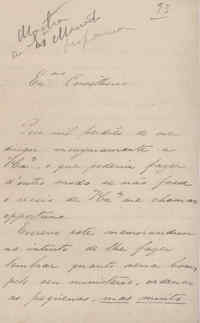 93
Mostra
a
Ex.mo Conselheiro
Peço mil perdões de me
dirigir novamente a
V. Ex.a, o que poderia fazer
d'outro modo se não fosse
o receio de V. Ex.a me chamar
opportuno.
Escrevo este memorandum
no intuito de lhe fazer
lembrar quanto seria bom,
pelo seu ministerio, ordenar
as pequenas, mas muito